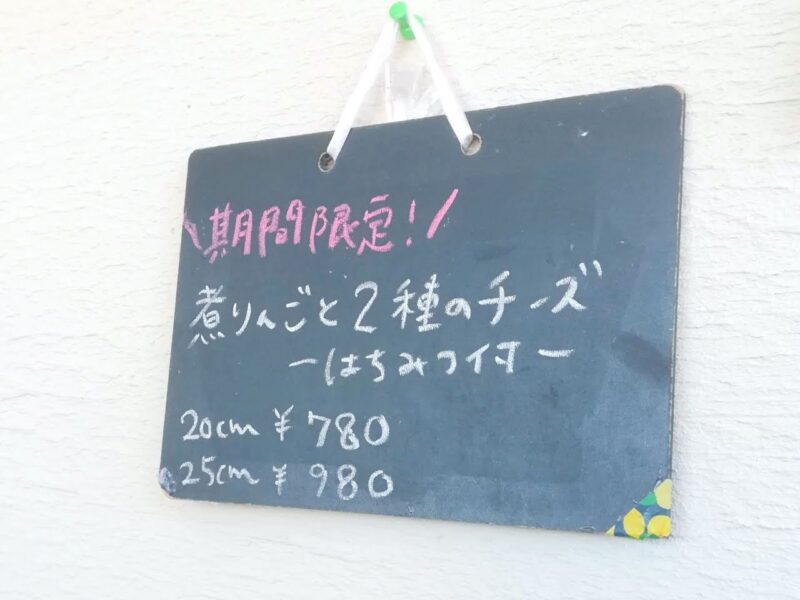 \期間限定!/
煮りんごと2種のチーズ
ーはちみつ付ー
20cm ¥780
25cm ¥980